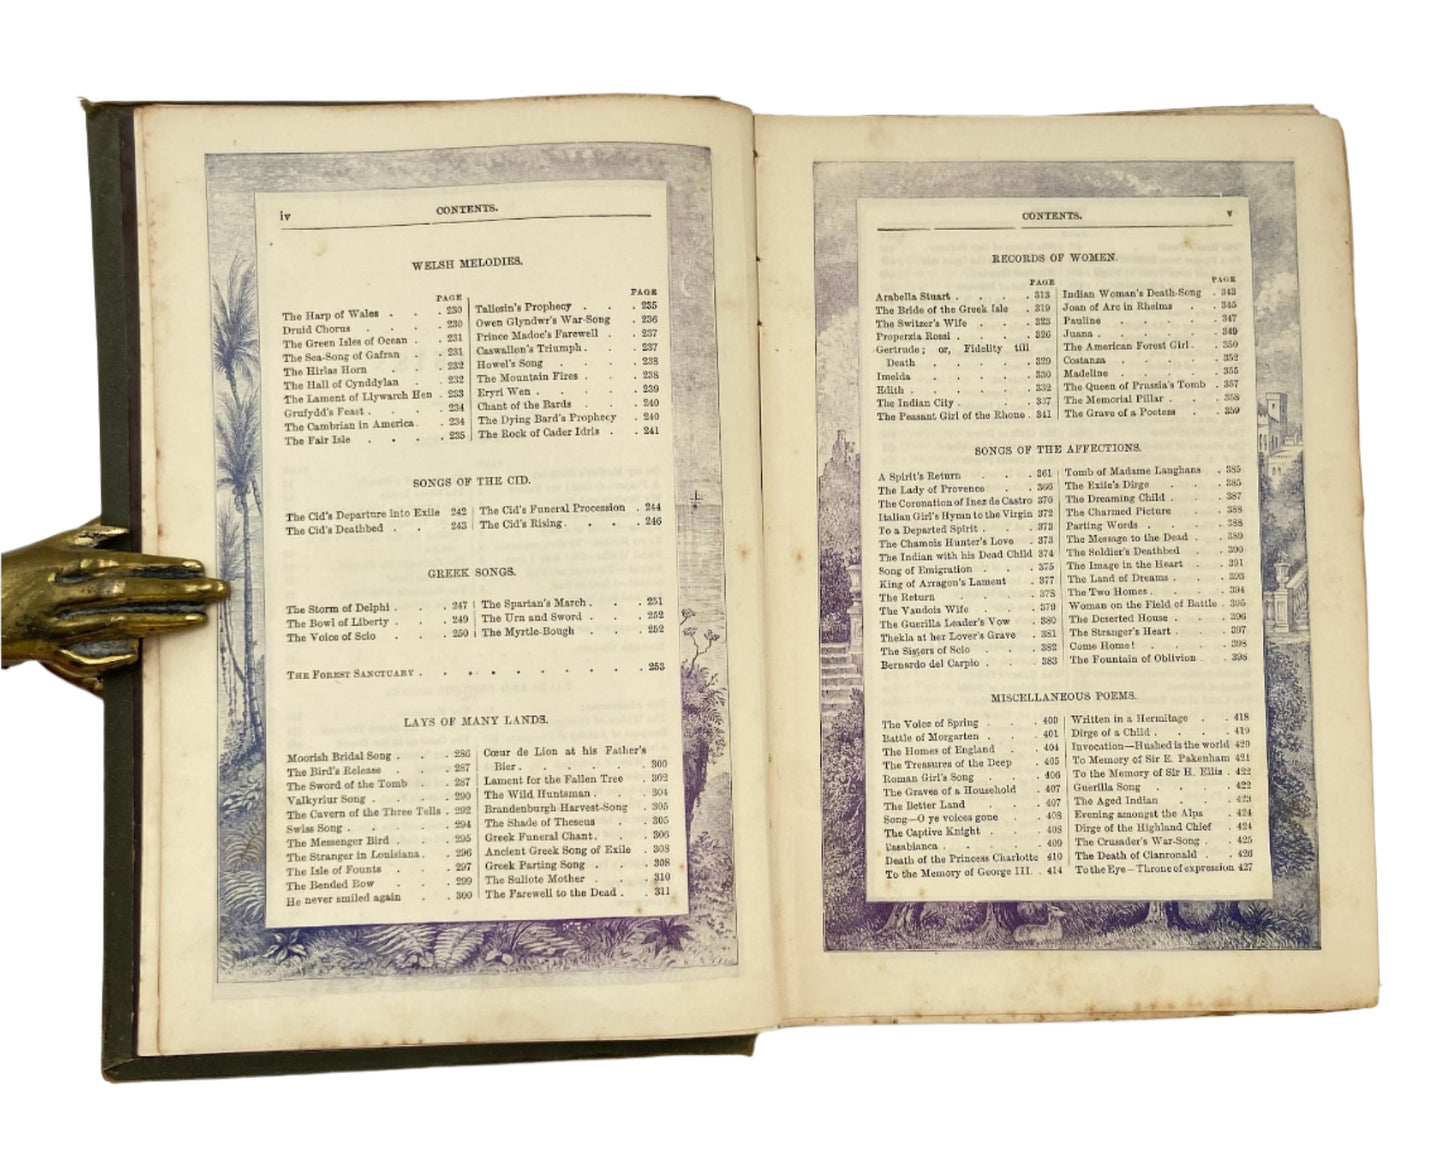 iv
CONTENTS.
WELSH MELODIES.
PAGE
The Harp of Wales . . . 230
Druid Chorus . . . . 230
The Green Isles of Ocean . . 231
The Sea-Song of Gafran . . 231
The Hirlas Horn . . . 232
The Hall of Cynddylan . . 232
The Lament of Llywarch Hen . 233
Grufydd's Feast . . . . 234
The Cambrian in America . . 234
The Fair Isle . . . . 235
PAGE
Taliesin's Prophecy . . . 235
Owen Glyndwr's War-Song . 236
Prince Madoc's Farewell . . 237
Caswallon's Triumph . . . 237
Howel's Song . . . . 238
The Mountain Fires . . . 238
Eryri Wen . . . . . 239
Chant of the Bards . . . 240
The Dying Bard's Prophecy . 240
The Rock of Cader Idris . . 241
SONGS OF THE CID.
The Cid's Departure into Exile 242
The Cid's Deathbed . . . 243
The Cid's Funeral Procession . 244
The Cid's Rising . . . . 246
GREEK SONGS.
The Storm of Delphi . . . 247
The Bowl of Liberty . . . 249
The Voice of Scio . . . 250
The Spartan's March . . . 251
The Urn and Sword . . . 252
The Myrtle-Bough . . . 252
THE FOREST SANCTUARY . . . . . . . . 253
LAYS OF MANY LANDS.
Moorish Bridal Song . . . 286
The Bird's Release . . . 287
The Sword of the Tomb . . 287
Valkyriur Song . . . . 290
The Cavern of the Three Tells . 292
Swiss Song . . . . . 294
The Messenger Bird . . . 295
The Stranger in Louisiana . . 296
The Isle of Founts . . . 297
The Bended Bow . . . 299
He never smiled again . . 300
Cœur de Lion at his Father's
Bier . . . . . . 300
Lament for the Fallen Tree . 302
The Wild Huntsman . . . 304
Brandenburgh Harvest-Song . 305
The Shade of Theseus . . 305
Greek Funeral Chant . . . 306
Ancient Greek Song of Exile . 308
Greek Parting Song . . . 308
The Suliote Mother . . . 310
The Farewell to the Dead . . 311
CONTENTS.
v
RECORDS OF WOMEN.
PAGE
Arabella Stuart . . . . 313
The Bride of the Greek Isle . 319
The Switzer's Wife . . . 323
Properzia Rossi . . . . 326
Gertrude; or, Fidelity till
Death . . . . . 329
Imelda . . . . . 330
Edith . . . . . . 332
The Indian City . . . . 337
The Peasant Girl of the Rhone . 341
PAGE
Indian Woman's Death-Song . 343
Joan of Arc in Rheims . . 345
Pauline . . . . . 347
Juana . . . . . . 349
The American Forest Girl . . 350
Costanza . . . . . 352
Madeline . . . . . 355
The Queen of Prussia's Tomb . 357
The Memorial Pillar . . . 358
The Grave of a Poetess . . 359
SONGS OF THE AFFECTIONS.
A Spirit's Return . . . 361
The Lady of Provence . . 366
The Coronation of Inez de Castro 370
Italian Girl's Hymn to the Virgin 372
To a Departed Spirit . . . 373
The Chamois Hunter's Love . 373
The Indian with his Dead Child 374
Song of Emigration . . . 375
King of Arragon's Lament . 377
The Return . . . . . 378
The Vaudois Wife . . . 379
The Guerilla Leader's Vow . 380
Thekla at her Lover's Grave . 381
The Sisters of Scio . . . 382
Bernardo del Carpio . . . 383
Tomb of Madame Langhans . 385
The Exile's Dirge . . . 385
The Dreaming Child . . . 387
The Charmed Picture . . 388
Parting Words . . . . 388
The Message to the Dead . . 389
The Soldier's Deathbed . . 390
The Image in the Heart . . 391
The Land of Dreams . . . 393
The Two Homes . . . . 394
Woman on the Field of Battle . 395
The Deserted House . . . 396
The Stranger's Heart . . . 397
Come Home! . . . . 398
The Fountain of Oblivion . . 398
MISCELLANEOUS POEMS.
The Voice of Spring . . . 400
Battle of Morgarten . . . 401
The Homes of England . . 404
The Treasures of the Deep . 405
Roman Girl's Song . . . 406
The Graves of a Household . 407
The Better Land . . . 407
Song—O ye voices gone . . 408
The Captive Knight . . . 408
Casabianca . . . . . 409
Death of the Princess Charlotte 410
To the Memory of George III. . 414
Written in a Hermitage . . 418
Dirge of a Child . . . . 419
Invocation—Hushed is the world 420
To Memory of Sir E. Pakenham 421
To the Memory of Sir H. Ellis . 422
Guerilla Song . . . . 422
The Aged Indian . . . 423
Evening amongst the Alps . 424
Dirge of the Highland Chief . 424
The Crusader's War-Song . . 425
The Death of Clanronald . . 426
To the Eye—Throne of expression 427